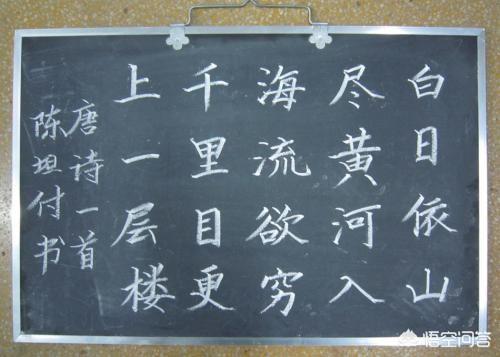 白日依山
尽黄河入
海流欲穷
千里目更
上一层楼
唐诗一首
陈坦付书
悟空问答